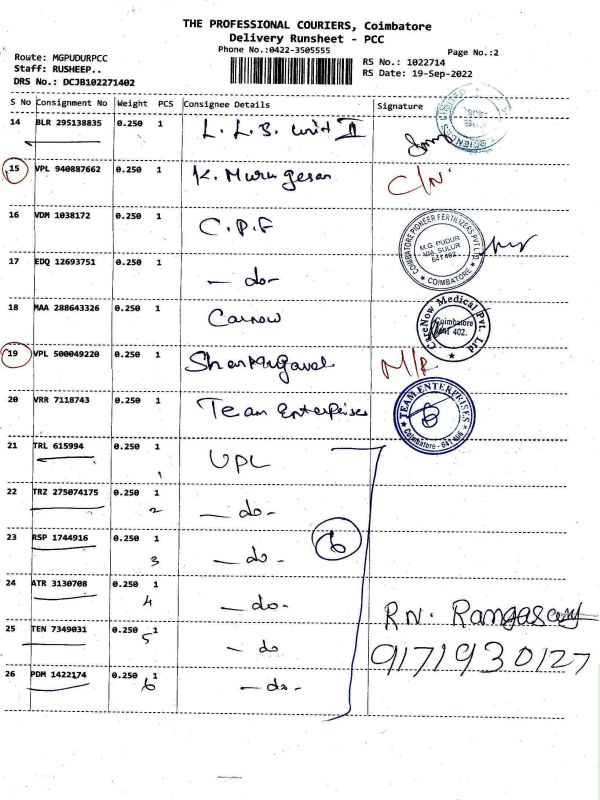 THE PROFESSIONAL COURIERS, Coimbatore
Delivery Runsheet - PCC
Phone No.:0422-3505555
Page No.:2
Route: MGPUDURPCC
Staff: RUSHEEP..
DRS No.: DCJB102271402
RS No.: 1022714
RS Date: 19-Sep-2022
S No Consignment No Weight PCS Consignee Details Signature
14 BLR 295138835 0.250 1 L.L.B. unit II
15 VPL 940887662 0.250 1 K. Murugesan C/N.
16 VDM 1038172 0.250 1 C.P.F
COIMBATORE PIONEER FERTILIZERS PVT LTD
M.G. PUDUR
VIA. SULUR
641 402.
* COIMBATORE *
17 EDQ 12693751 0.250 1 - do-
18 MAA 288643326 0.250 1 Carnow
CareNow Medical Pvt. Ltd
Coimbatore
641 402.
19 VPL 500049220 0.250 1 M/R
20 VRR 7118743 0.250 1 Team Enterprises
TEAM ENTERPRISES
Coimbatore - 641 406
21 TRL 615994 0.250 1 UPL
1
22 TRZ 275074175 0.250 1 - do-
2
23 RSP 1744916 0.250 1 - do-
3
6
24 ATR 3130708 0.250 1 - do-
4
RN. Rangasamy
25 TEN 7349031 0.250 1 - do
5
9171930127
26 PDM 1422174 0.250 1 - do-
6